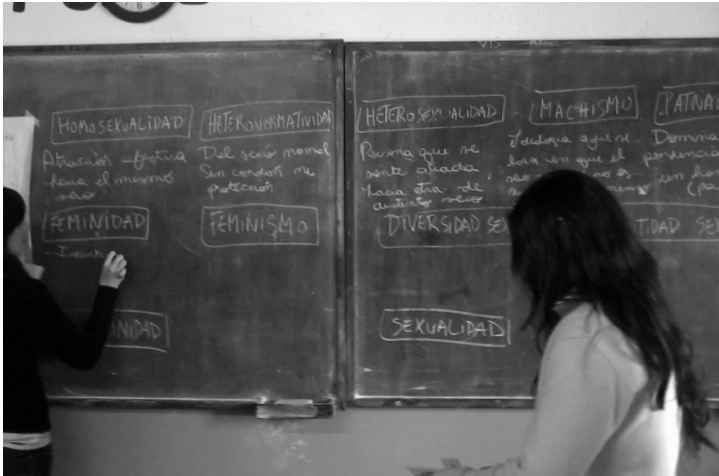 HOMOSEXUALIDAD
Atracción afectiva
hacia el mismo
sexo
HETERONORMATIVIDAD
Del sexo normal
Sin condon ni
protección
FEMINIDAD
FEMINISMO
NIDAD
HETEROSEXUALIDAD
Persona que se
siente atraida
hacia otra de
distinto sexo
MACHISMO
Ideologia que se
basa en que el
PATRIAR
Domina
un ho
DIVERSIDAD SEX
TIDAD SE
SEXUALIDAD